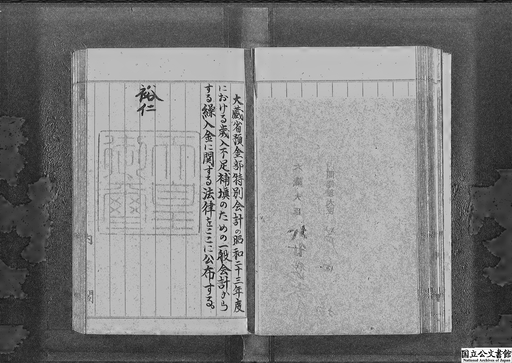 大蔵省預金部特別会計の昭和二十三年度
における歳入不足補塡のための一般会計から
する繰入金に関する法律をここに公布する。
裕仁
天皇御璽
国立公文書館
National Archives of Japan